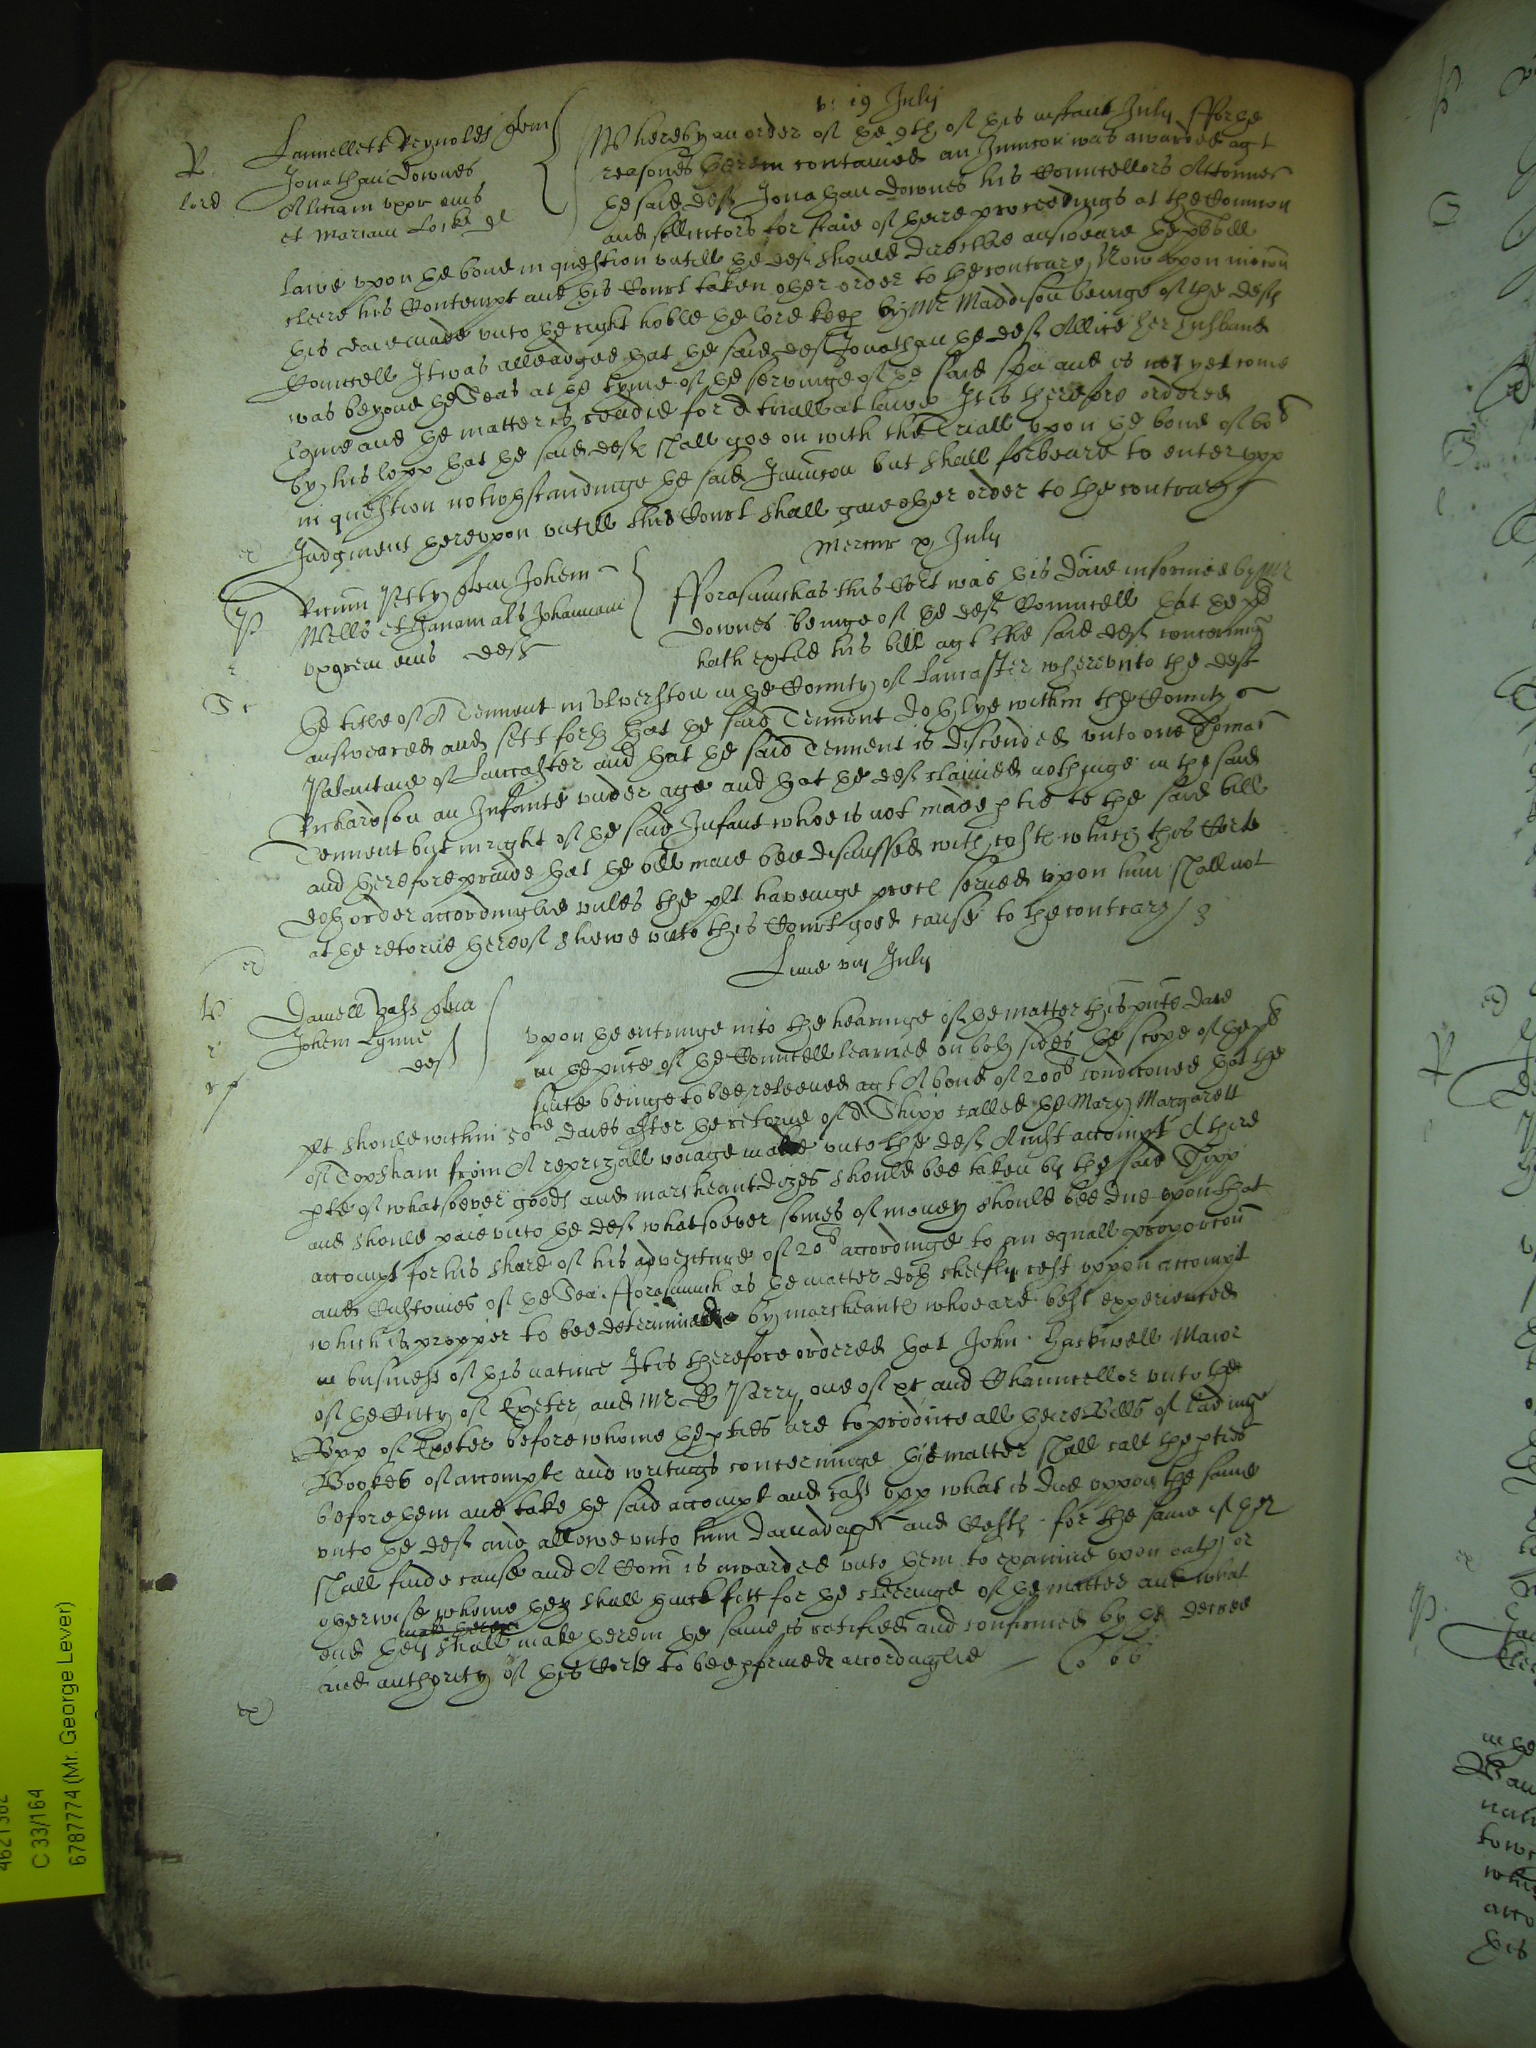 v: 19 July
R
lord
Launcellett Reynolds
Jonathan Downes
Aliciam uxor eius
et Mariam
Whereby an order of the 9th of this instant July ffor the
reasons therein contained an Iniuncon was awarded agt
the said deft Jonathan Downes his Councellors Attorneis
and sollicitors for staie of there proceedings at the Common
lawe upon the bond in question untill the deft should directlie answeare the bill
cleere his Contempt and this Court taken other order to the contrary, Now upon mocon
this daie made unto the right hoble the lord keep by Mr Maddison beinge of the defts
Councell It was alleadged that the said deft Jonathan the deft Allice her husband
was beyond the Seas at the tyme of the servinge of the said and is not yet come
home and the matter is readie for a triall at lawe It is therefore ordered
by his lopp that the said deft shall goe on with the Triall upon the bond of
in question nothwithstandinge the said Iniuncon but shall forbeare to enter upp
Judgment thereupon untill this Court shall give other order to the contrary
Mercur July
P
Petty Johem
Mills et Janam als Johannam
uxorem eius deft
fforasmuch as this Cort was this daie informed by Mr
Downes beinge of the deft Councell that the
hath his bill agt the said deft concerning
the title of A Tenment in Ulverston in the County of Lancaster whereunto the deft
answeared and sett forth that the said Tenment doth lye within the County
Palantine of Lancaster and that the said Tenment is discended unto one Thomas
Richardson an Infante under age and that the deft claimed nothinge in the said
Tenment but in right of the said Infant whoe is not made ptie to the said bill
and therefore praied that the bill maie bee dismissed with costs which this Corte
doth order accordinglie unles the plt haveinge proces served upon him shall not
at the retorne thereof shewe unto this Court good cause to the contrary
Lune viij July
Daniell
Johem Lynne
deft
Upon the entringe into the hearinge of the matter this pnte daie
in the pnce of the Councell learned on both sides the scope of the
suite beinge to bee releeved agt A bond of 200 condiconed that the
plt should within 50 daies after the retorne of A Shipp called the Mary Margarett
of Topsham from A reprizall voiage make unto the deft A iust accompt A third
pte of whatsoever goods and marcheantdizes should bee taken by the said Shipp
and should paie unto the deft whatsoever somes of money should bee due upon that
accompt for his share of his adventure of 20 accordinge to an equall proporcon
and Customes of the Sea. fforasmuch as the matter doth cheefly rest uppon accompt
which is propper to bee determined by marcheants whoe are best experienced
in business of this nature It is therefore ordered that John Hackwell Maior
of the Citty of Exeter and Mr D Parry one of and Chauncellor unto the
Bpp of Exeter before whome the pties are to produce all there Bills of ladinge
Bookes of accompts and writings concerninge the matter shall call the pties
before them and take the said accompt and cast upp what is due uppon the same
unto the deft and allowe unto him damadges and Costs for the same if they
shall finde cause and A Com is awarded unto them to examine upon oath or
otherwise whome they shall thinke fitt for the cleeringe of the matter and what
end they shall make therein the same is ratified and confirmed by the decree
and authority of this Corte to bee pformed accordinglie
C 33/164
6787774 (Mr. George Lever)